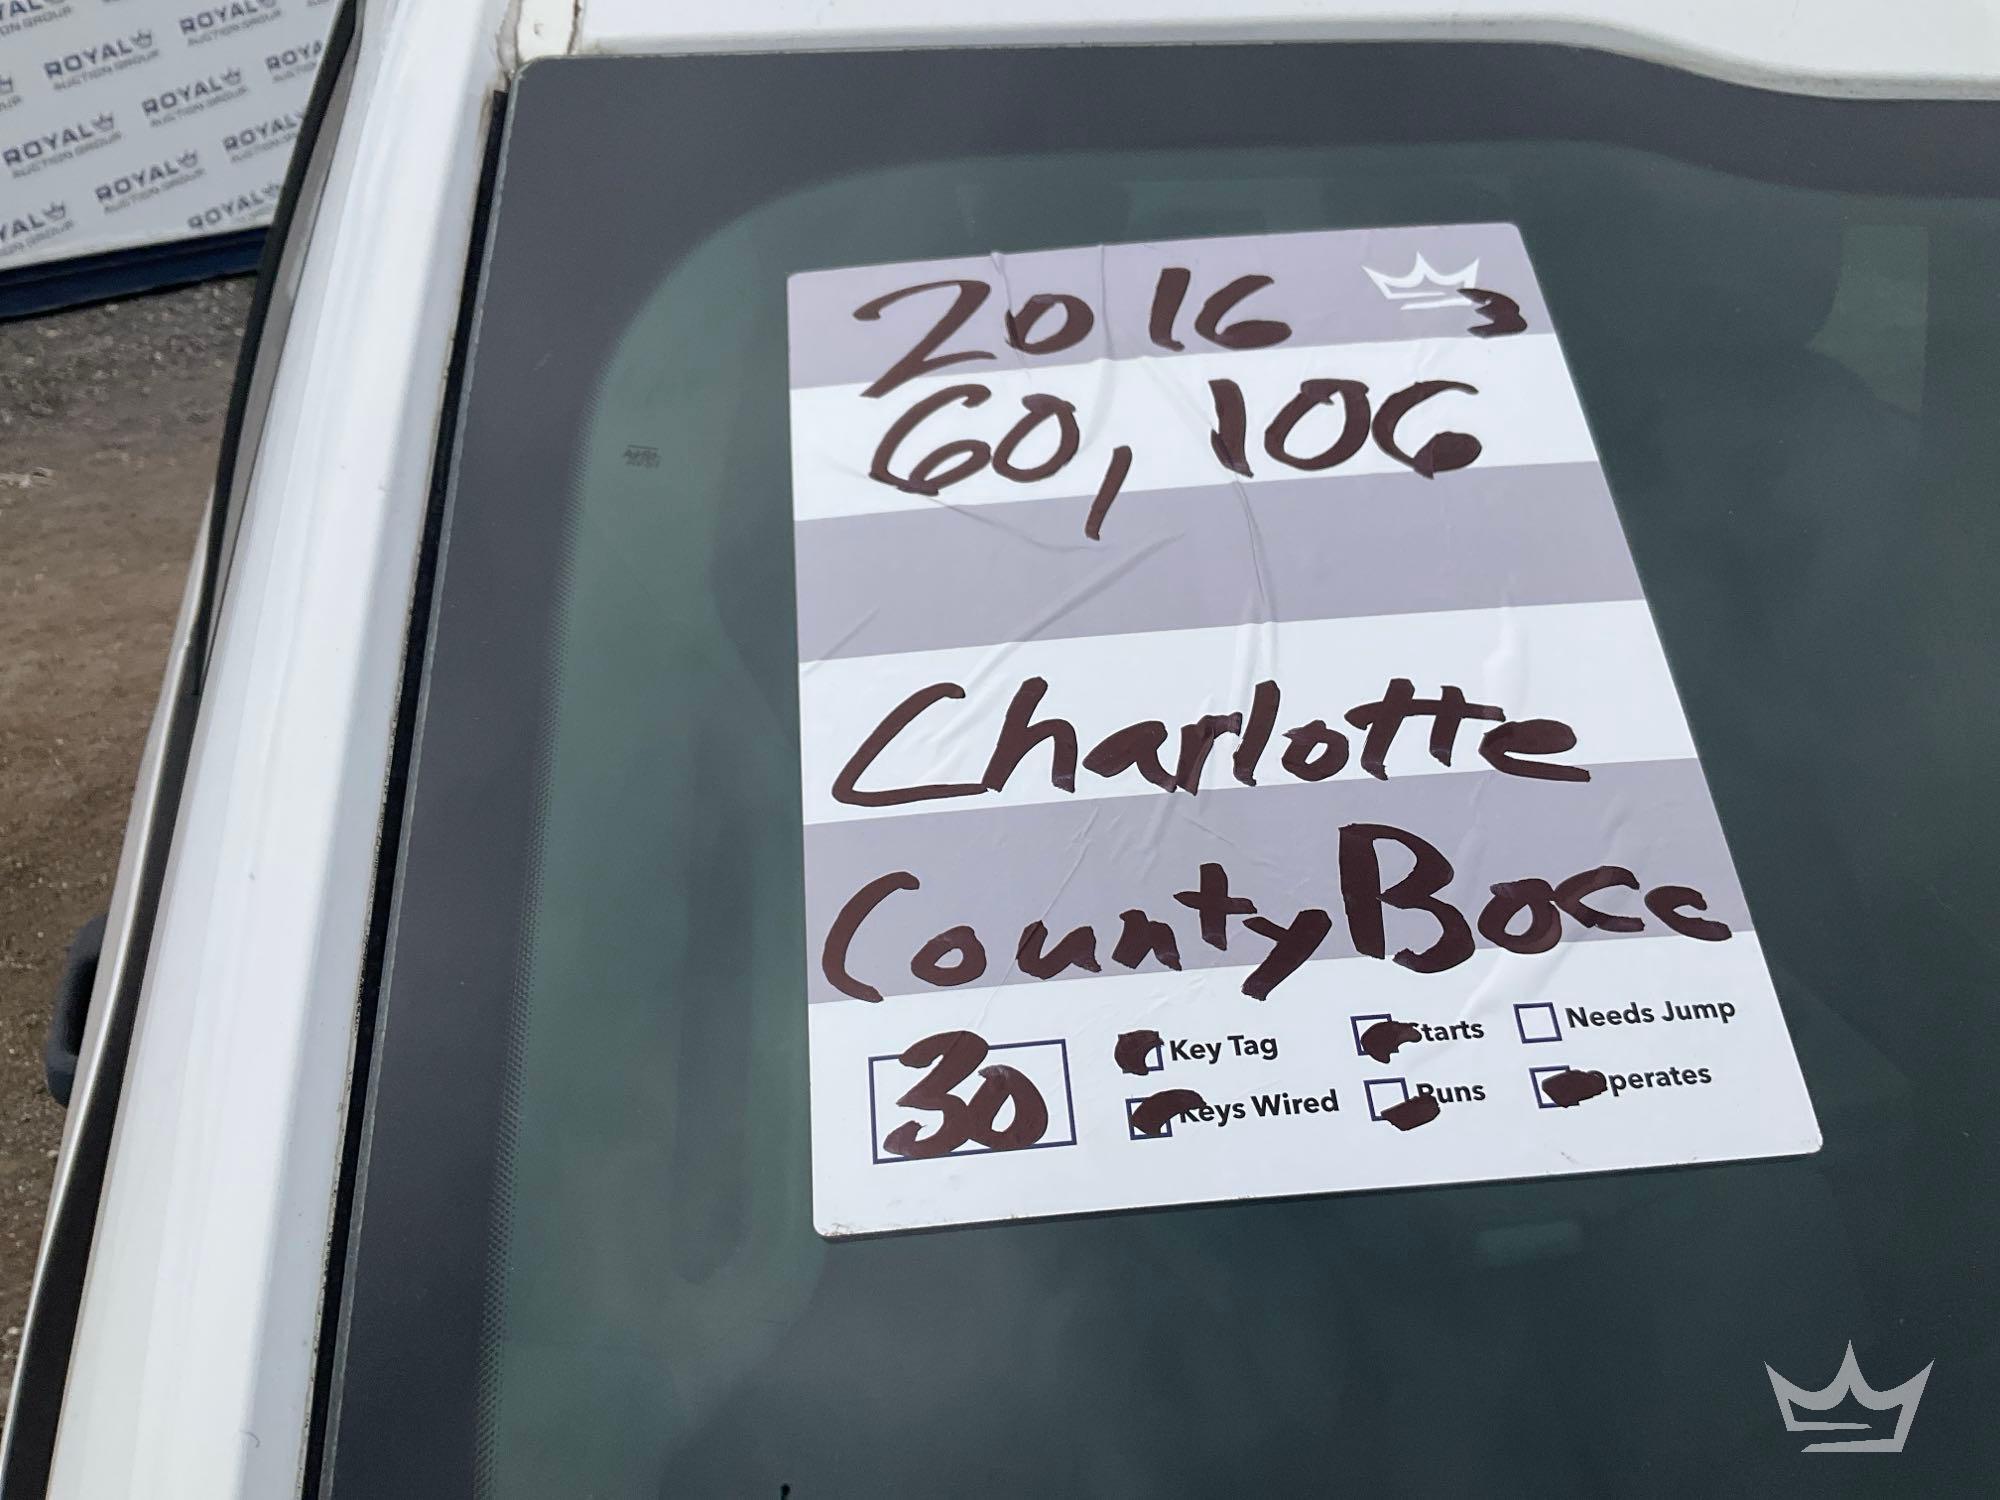 ROYAL
AUCTION GROUP
ROYAL
AUCTION GROUP
ROYAL
AUCTION GROUP
ROYAL
AUCTION GROUP
ROYAL
AUCTION GROUP
ROYAL
AUCTION GROUP
ROYAL
2016 3
60,106
Charlotte
County Bocc
30
Key Tag
Starts
Needs Jump
Keys Wired
Runs
Operates